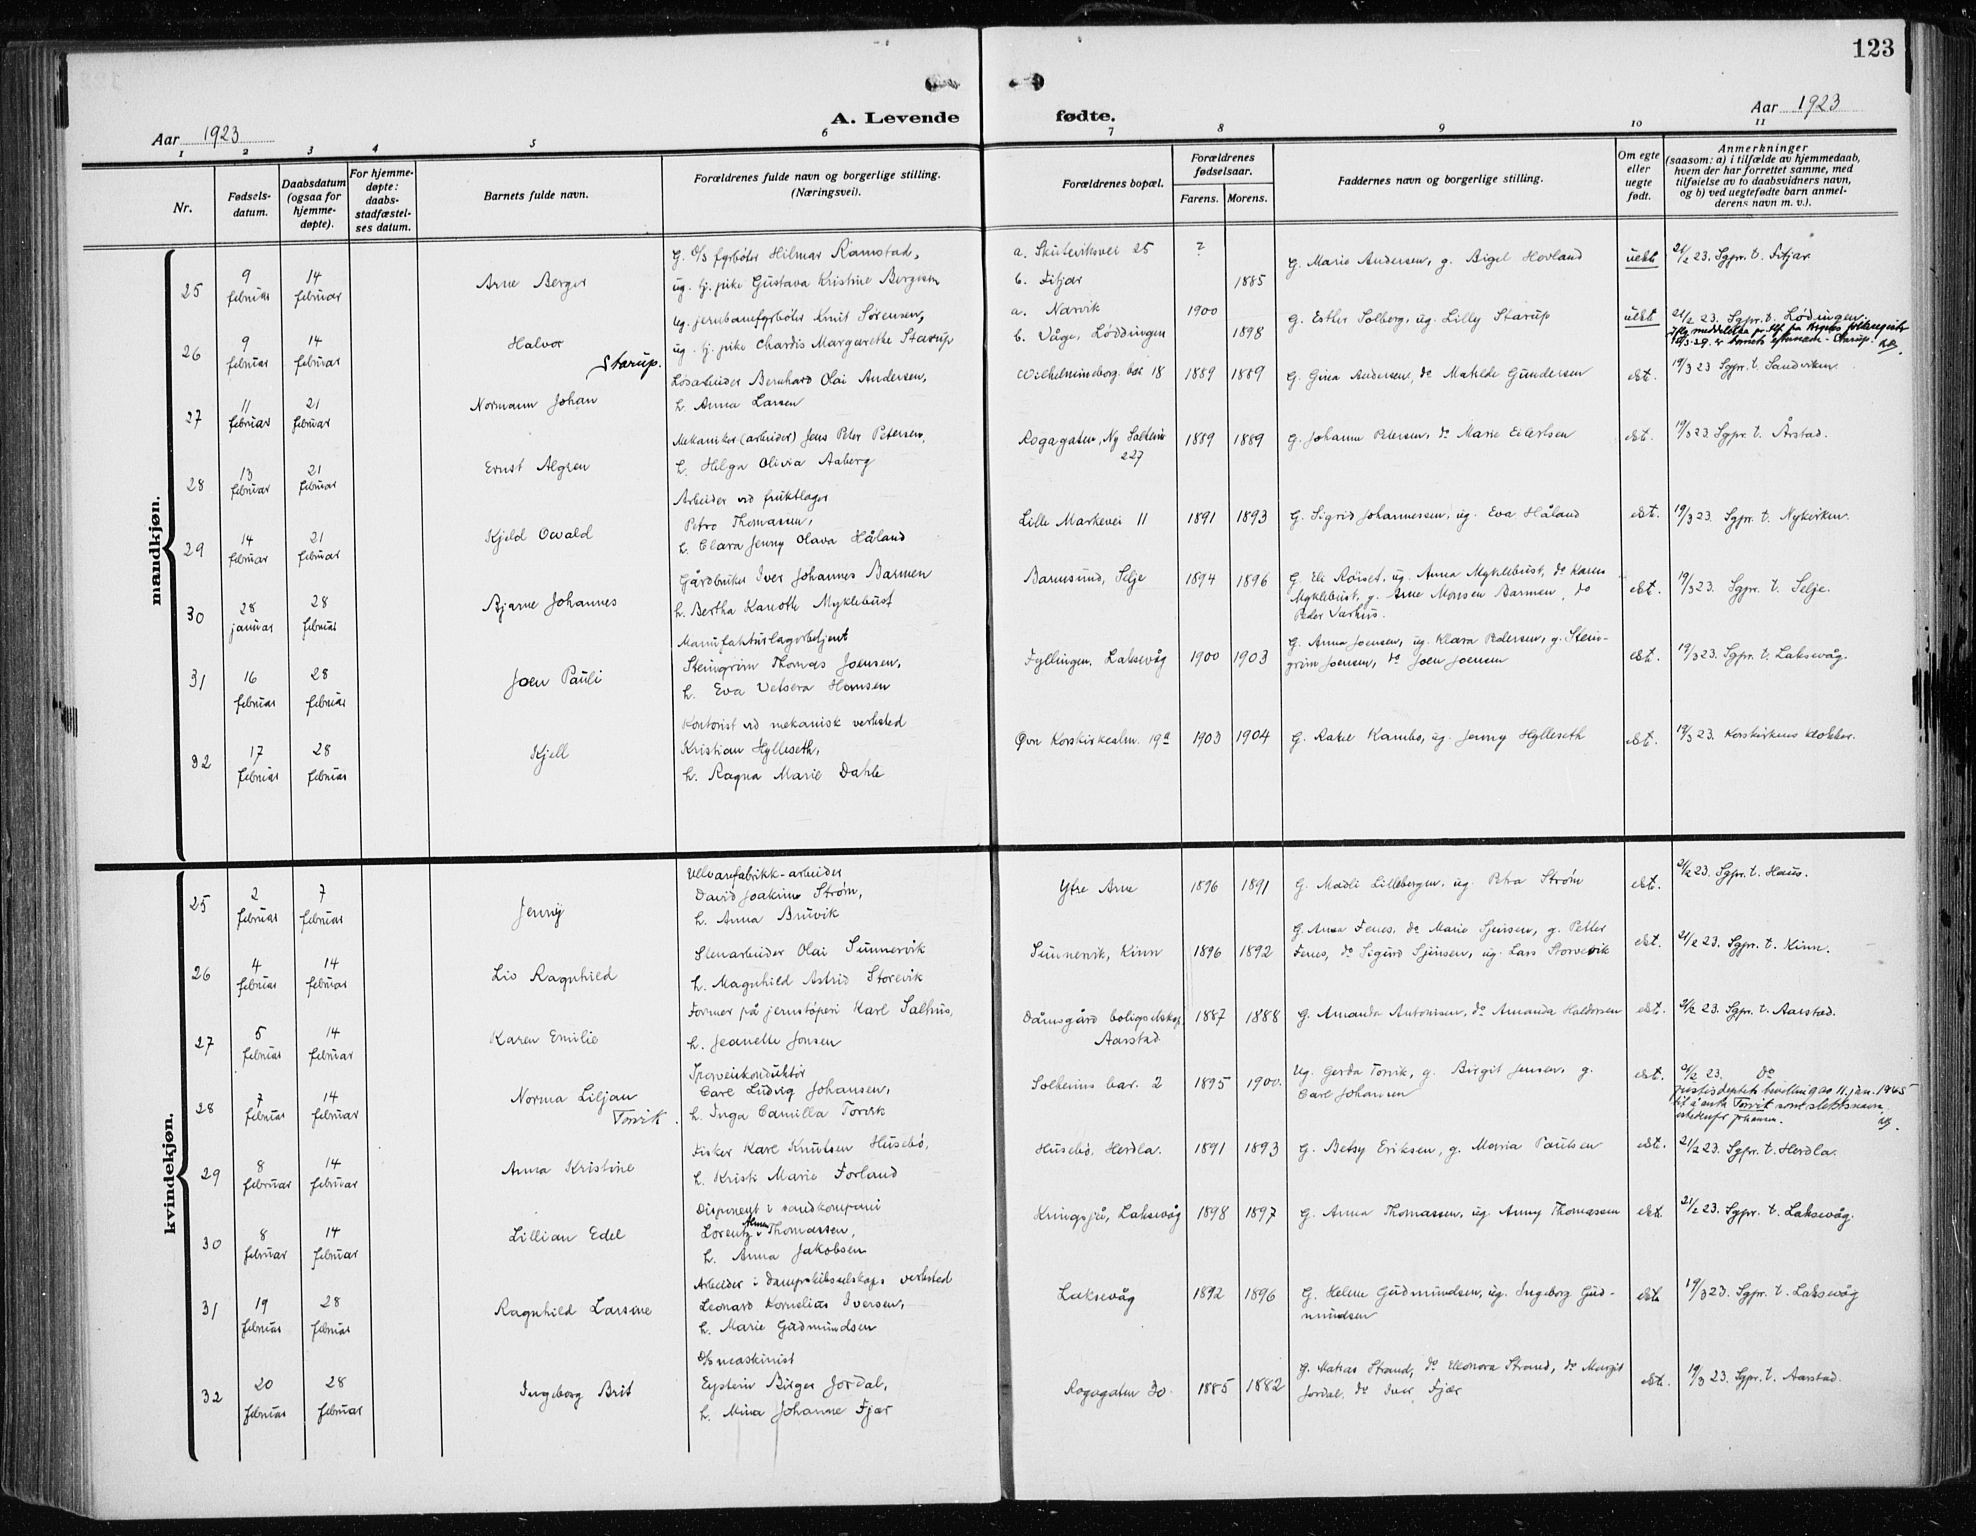 123
A. Levende fødte.
Aar 1923
Aar 1923
1 2 3 4 5 6 7 8 9 10 11
Nr.
Fødsels-
datum.
Daabsdatum
(ogsaa for
hjemme-
døpte).
For hjemme-
døpte:
daabs-
stadfæstel-
ses datum.
Barnets fulde navn.
Forældrenes fulde navn og borgerlige stilling.
(Næringsvei).
Forældrenes bopæl.
Forældrenes
fødselsaar.
Farens. Morens.
Faddernes navn og borgerlige stilling.
Om egte
eller
uegte
født.
Anmerkninger
(saasom: a) i tilfælde av hjemmedaab,
hvem der har forrettet samme, med
tilføielse av to daabsvidners navn,
og b) ved uegtefødte barn anmel-
derens navn m. v.).
mandkjøn.
25
9 februar
14 februar
Arne Berger
G. D/S fyrbøter Hilmar Ramstad,
ug. tj. pike Gustava Kristine Bergesen
a. Skuteviksvei 25
b. Fitjar
?
1885
G. Marie Andersen, g. Aigel Hovland
uekte
21/2 23. Sgpr. t. Fitjar
26
9 februar
14 februar
Halvor
Starup.
Ug. jernbanefyrbøter Knut Sørensen,
ug. tj. pike Chardis Margarethe Starup
a. Narvik
b. Våge, Løddingen
1900
1898
G. Esther Solberg, ug. Lilly Starup
uekt
21/2 23. Sgpr. t. Lødingen.
27
11 februar
21 februar
Normann Johan
Løsarbeider Bernhard Olai Andersen,
h. Anna Larsen
Wilhelmineborg. bar 18
1889 1889
G. Gina Andersen, do Matilde Gundersen
ekt.
19/3 23 Sgpr. t. Sandviken.
28
13 februar
21 februar
Ernst Algren
Mekaniker (arbeider) Jens Peter Petersen,
h. Helga Olivia Aaberg
Rogagaten, Ny Solheim
227
1889 1889
G. Johanne Petersen, do Marie Eilertsen
ekt.
19/3 23. Sgpr. t. Årstad.
29
14 februar
21 februar
Kjeld Osvald
Arbeider ved fruktlager
Petro Thomassen,
h. Clara Jenny Olava Håland
Lille Markevei 11
1891 1893
G. Sigrid Johannessen, ug. Eva Håland
ekt.
19/3 23. Sgpr. t. Nykirken.
30
28 januar
28 februar
Bjarne Johannes
Gårdbruker Iver Johannes Barmen
h. Bertha Kanoth Myklebust
Barmsund, Selje
1894 1896
G. Eli Røiset, ug. Anna Myklebust, do Karen
Myklebust, g. Arne Monsen Barmen, do
Peder Varhus.
ekt.
19/3 23. Sgpr. t. Selje.
31
16 februar
28 februar
Joen Pauli
Manufakturlagerbetjent
Steingrim Thomas Joensen,
h. Eva Vetsera Hansen
Fyllingen, Laksevåg
1900 1903
G. Anna Joensen, ug. Klara Pedersen, g. Stein-
grim Joensen, do Joen Joensen
ekt.
19/3 23. Sgpr. t. Laksevåg.
32
17 februar
28 februar
Kjell
Kontorist ved mekanisk verksted
Kristian Hylleseth,
h. Ragna Marie Dahle
Øvr Korskirkealm. 19a
1903 1904
G. Rakel Kambo, ug. Jenny Hylleseth
ekt.
19/3 23. Korskirkens klokker.
kvindekjøn.
25
2 februar
7 februar
Jenny
Ullvarefabrikk-arbeider
David Joakim Strøm,
h. Anna Bruvik
Ytre Arne
1896 1891
G. Madli Lillebergen, ug. Petra Strøm
ekt.
21/2 23. Sgpr. t. Haus.
26
4 februar
14 februar
Liv Ragnhild
Stenarbeider Olai Sunnervik
h. Magnhild Astrid Storevik
Sunnervik, Kinn
1896 1892
G. Anna Fenes, do Marie Sjursen, g. Petter
Fenes, do Sigurd Sjursen, ug. Lars Storevik
ekt.
21/2 23. Sgpr. t. Kinn.
27
5 februar
14 februar
Karen Emilie
Former på jernstøperi Karl Salhus,
h. Jeanette Jonsen
Damsgård boligselskap,
Aarstad.
1887 1888
G. Amanda Antonisen, do Amanda Haldorsen
ekt.
21/2 23. Sgpr. t. Aarstad.
28
7 februar
14 februar
Norma Liljan
Torvik.
Sporveiskonduktør
Carl Ludvig Johansen,
h. Inga Camilla Torvik
Solheims bar. 2
1895 1900.
Ug. Gerda Torvik, g. Birgit Jensen, g.
Carl Johansen
ekt.
21/2 23. Do
Justisdeptets bevilling av 11. jan. 1945
til å anta Torvik som slektsnavn
istedenfor Johansen.
29
8 februar
14 februar
Anna Kristine
Fisker Karl Knutsen Husebø,
h. Kristi Marie Forland
Husebø, Herdla.
1891 1893
G. Betsy Eriksen, g. Maria Paulsen
ekt.
21/2 23. Sgpr. t. Herdla.
30
8 februar
14 februar
Lillian Edel
Disponent i sandkompani
Lorentz Thomassen,
h. Anna Jakobsen
Kringsjå, Laksevåg
1898 1897
G. Anna Thomassen, ug. Anny Thomassen
ekt.
21/2 23. Sgpr. t. Laksevåg.
31
19 februar
28 februar
Ragnhild Larsine
Arbeider i Dampskibsselskaps verksted
Leonard Kornelius Iversen,
h. Marie Gudmundsen
Laksevåg
1892 1896
G. Helene Gudmundsen, ug. Ingeborg Gud-
mundsen
ekt.
19/3 23. Sgpr. t. Laksevåg
32
20 februar
28 februar
Ingeborg Brit
D/S maskinist
Eystein Birger Jordal,
h. Mina Johanne Fjær
Rogagaten 30.
1885 1882
G. Matias Strand, do Eleonora Strand, do Margit
Jordal, do Iver Fjær
ekt.
19/3 23. Sgpr. t. Aarstad.